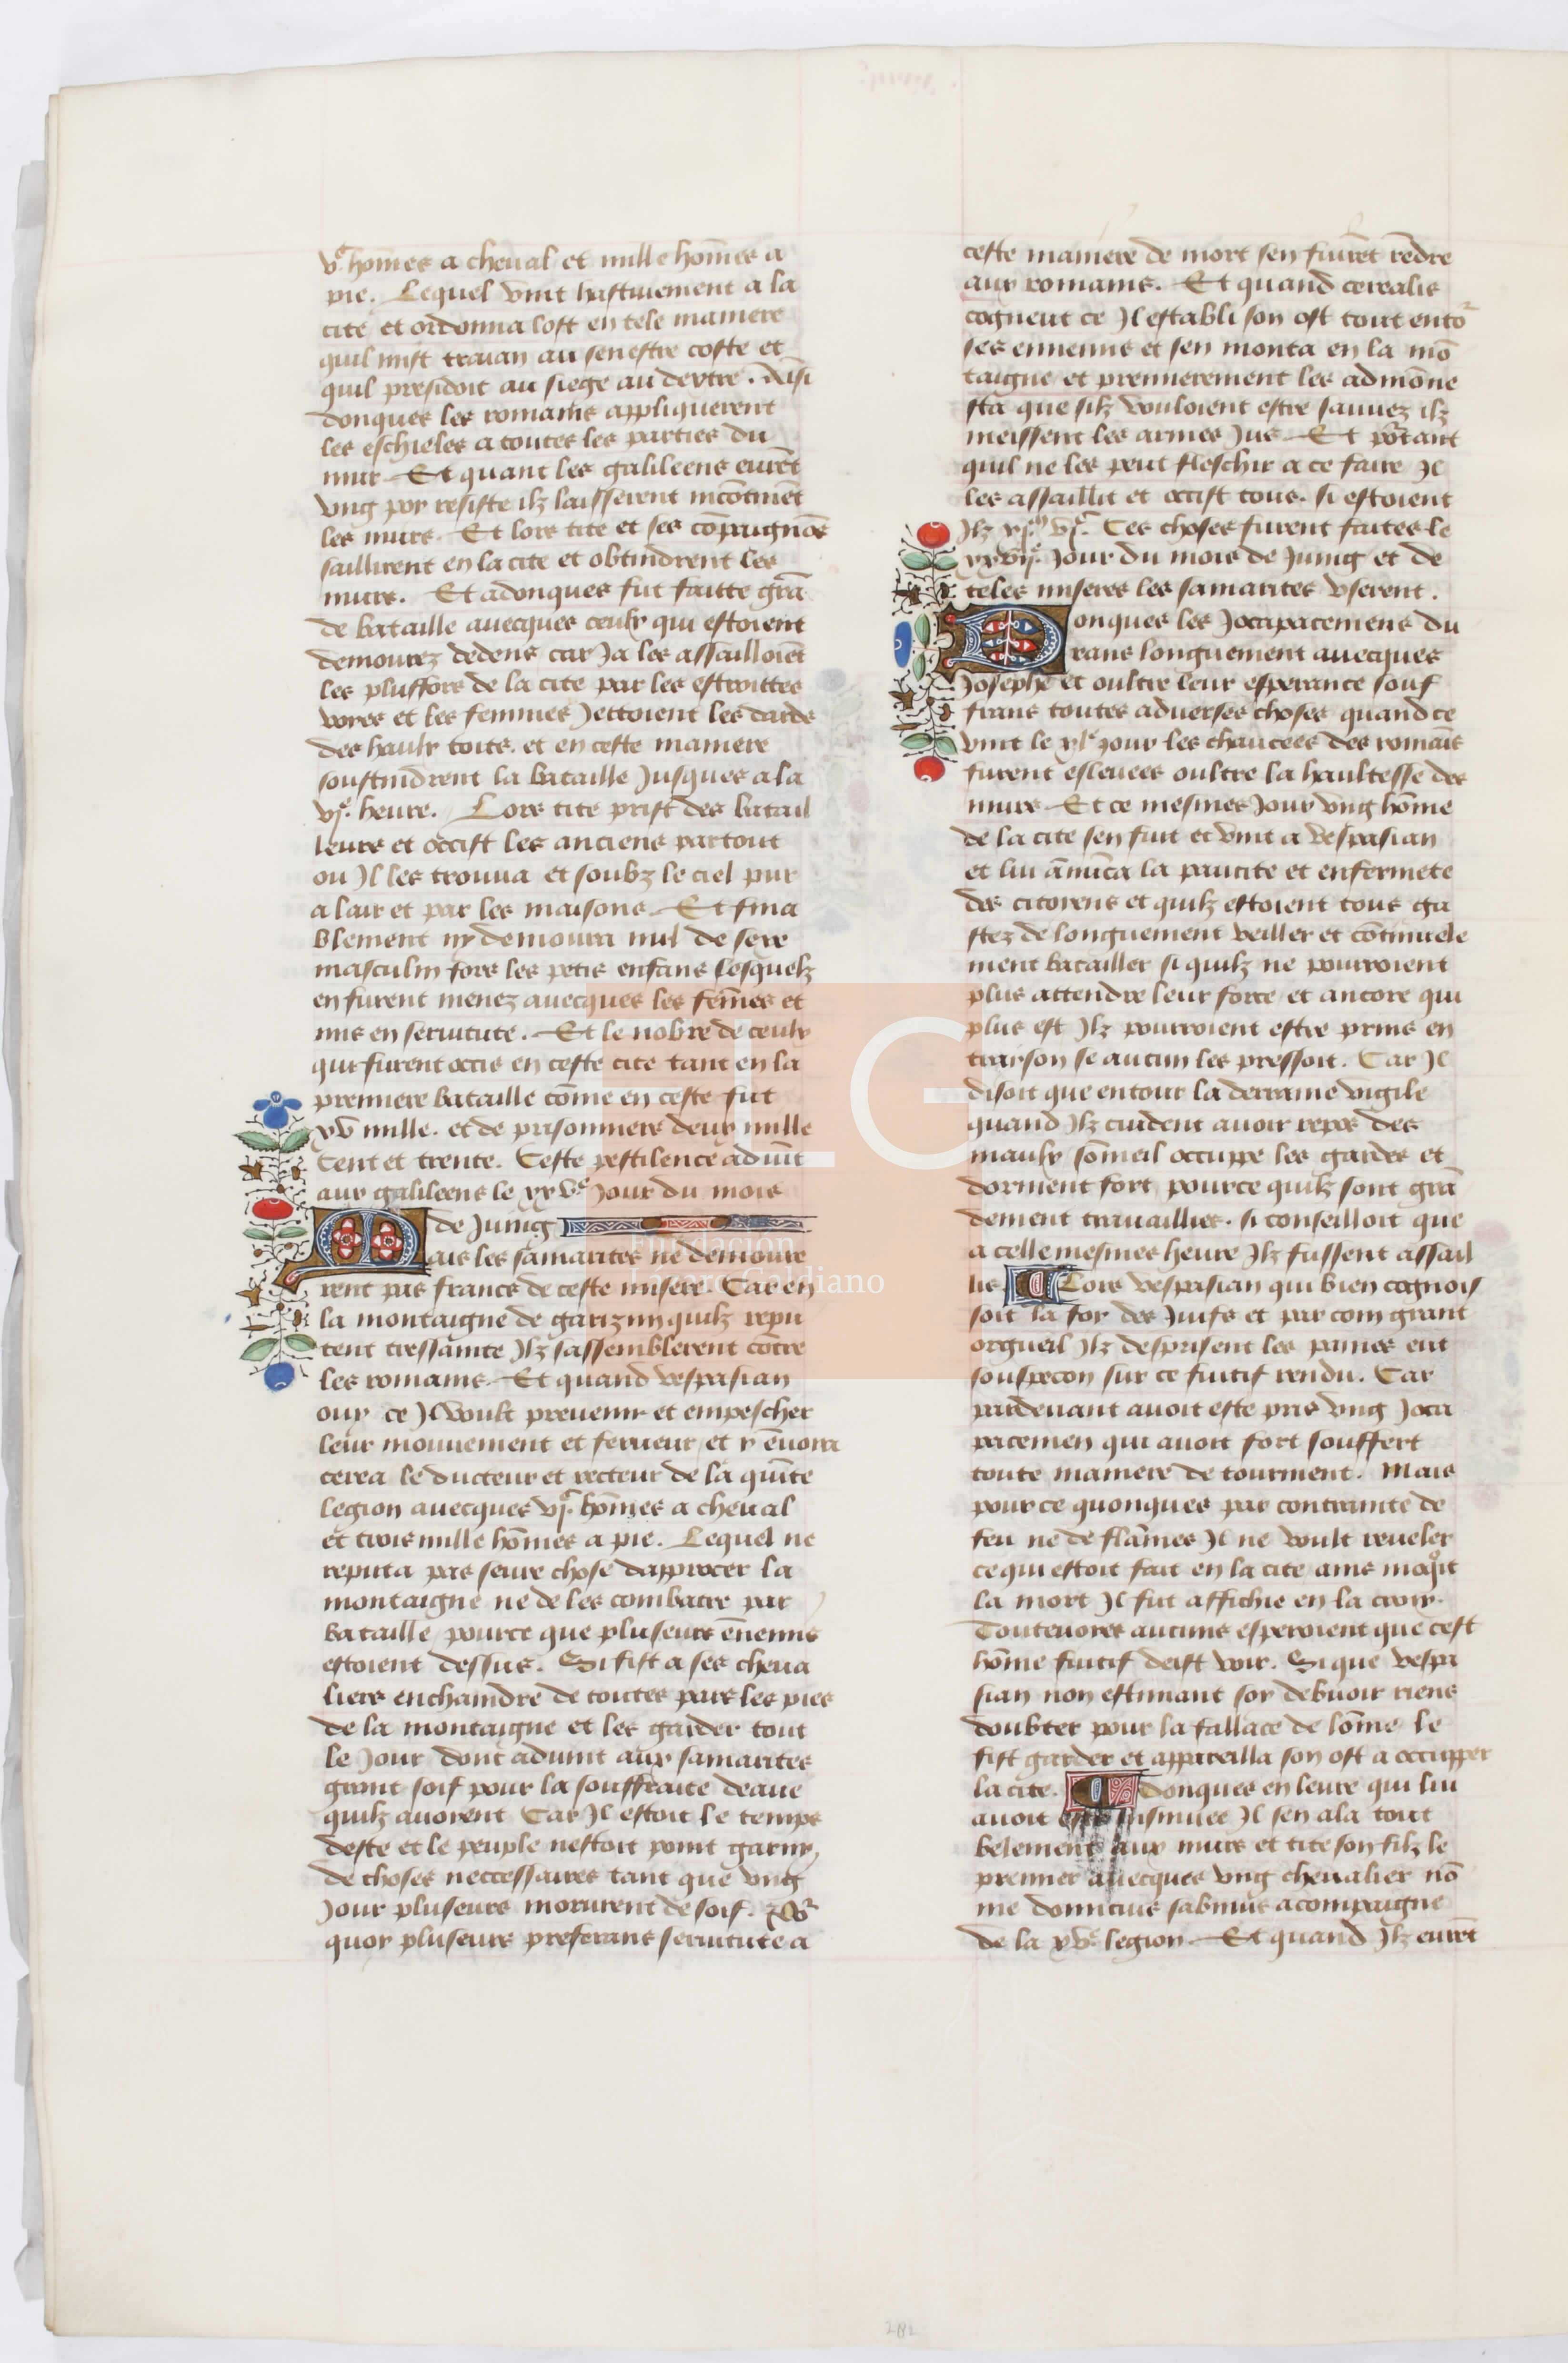 v.ᶜ hōmes a cheval et mille hōmes a
pie. Lequel vint hastivement a la
cite et ordonna lost en tele maniere
quil mist traian au senestre coste et
quil presidoit au siege au dextre. Aīsi
donques les romains appliquerent
les eschieles a toutes les parties du
mur. Et quant les galileens eurēt
vng poy resiste ilz laisserent incōtinēt
les murs. Et lors tite et ses cōpaignōs
saillirent en la cite et obtindrent les
murs. Et adonques fut faitte grā
de bataille auecques ceulx qui estoient
demourez dedens car Ja les assailloiēt
les plusfors de la cite par les estroittes
voies et les femmes Jettoient les dards
des haulx toits. et en ceste maniere
soustindrent la bataille Jusques a la
vj.ᵉ heure. Lors tite prist des batail
leurs et occist les anciens partout
ou Il les trouua et soubz le ciel pur
a lair et par les maisons. Et fina
blement ny demoura nul de sexe
masculin fors les petis enfans lesquelz
en furent menez auecques les fēmes et
mis en seruitute. Et le nobre de ceulx
qui furent occis en ceste cite tant en la
premiere bataille cōme en ceste fut
xv mille. et de prisonniers deux mille
Cent et trente. Ceste pestilence aduīt
aux galileens le xxv.ᵉ Jour du mois
de Juing
Mais les samarites ne demoure
rent pas francs de ceste misere. Car en
la montaigne de garizim quilz repu
tent tressainte Ilz sassemblerent cōtre
les romains. Et quand vespasian
ouy ce Il voult preuenir et empescher
leur mouuement et ferueur et y ēuoia
cerea le ducteur et recteur de la quīte
legion auecques vj.ᶜ hōmes a cheual
et trois mille hōmes a pie. Lequel ne
reputa pas seure chose dapprocer la
montaigne ne de les combatre par
bataille pource que pluseurs ēnemis
estoient dessus. Si fist a ses cheua
liers enchaindre de toutes pars les pies
de la montaigne et les garder tout
le Jour dont aduint aux samarites
grant soif pour la souffraite deaue
quilz auoient Car Il estoit le temps
deste et le peuple nestoit point garny
de choses neccessaires tant que vng
Jour pluseurs morurent de soif.
quoy pluseurs preferans seruitute a
ceste maniere de mort sen fuirēt rēdre
aux romains. Et quand cerealis
cogneut ce Il establi son ost tout ento
ses ennemis et sen monta en la mō
taigne et premierement les admōne
sta que silz vouloient estre sauuez ilz
meissent les armes Jus. Et pōtant
quil ne les peut fleschir a ce faire Il
les assaillit et occist tous. si estoient
Ilz xj.ᵐ vj.ᶜ Ces choses furent faites le
xxvij.ᵉ Jour du mois de Juing et de
teles miseres les samarites vserent.
Donques les Jotapatemens du
rans longuement auecques
Josephe et oultre leur esperance souf
frans toutes aduerses choses quand ce
vint le xlᵉ jour les chaucees des romaīs
furent esleuees oultre la haultesse des
murs. Et ce mesmes Jour vng hōme
de la cite sen fuit et vint a vespasian
et lui ānūca la paucite et enfermete
des citoiens et quilz estoient tous ga
stez de longuement veiller et cōtinuele
ment batailler si quilz ne pourroient
plus attendre leur force et ancore qui
plus est Ilz pourroient estre prins en
traison se aucun les pressoit. Car Il
disoit que entour la derraine vigile
quand Ilz cuident auoir repos des
maulx sōmeil occuppe les gardes et
dorment fort pource quilz sont grā
dement trauaillies. si conseilloit que
a celle mesmes heure Ilz fussent assail
lis. Lors vespasian qui bien cognois
soit la foy des Juifs et par com grant
orgueil Ilz desprisent les paines eut
souspecon sur ce fuitif rendu. Car
pardeuant auoit este pris vng Jota
patemen qui auoit fort souffert
toute maniere de tourment. Mais
pour ce quonques par contrainte de
feu ne de flāmes Il ne voult reueler
ce qui estoit fait en la cite ains moqͦit
la mort Il fut affichie en la croix.
Touteuoies aucuns esperoient que cest
hōme fuitif deist voir. Si que vespa
sian non estimant soy debuoir riens
doubter pour la fallace de lōme le
fist garder et appareilla son ost a occupper
la cite. Adonques en leure qui lui
auoit este Insinuee Il sen ala tout
belement aux murs et tite son filz le
premier auecques vng cheualier nō
me domicius sabinus acompaigne
de la xv.ᵉ legion. Et quand Ilz eurēt
LG
Fundación
Lázaro Galdiano